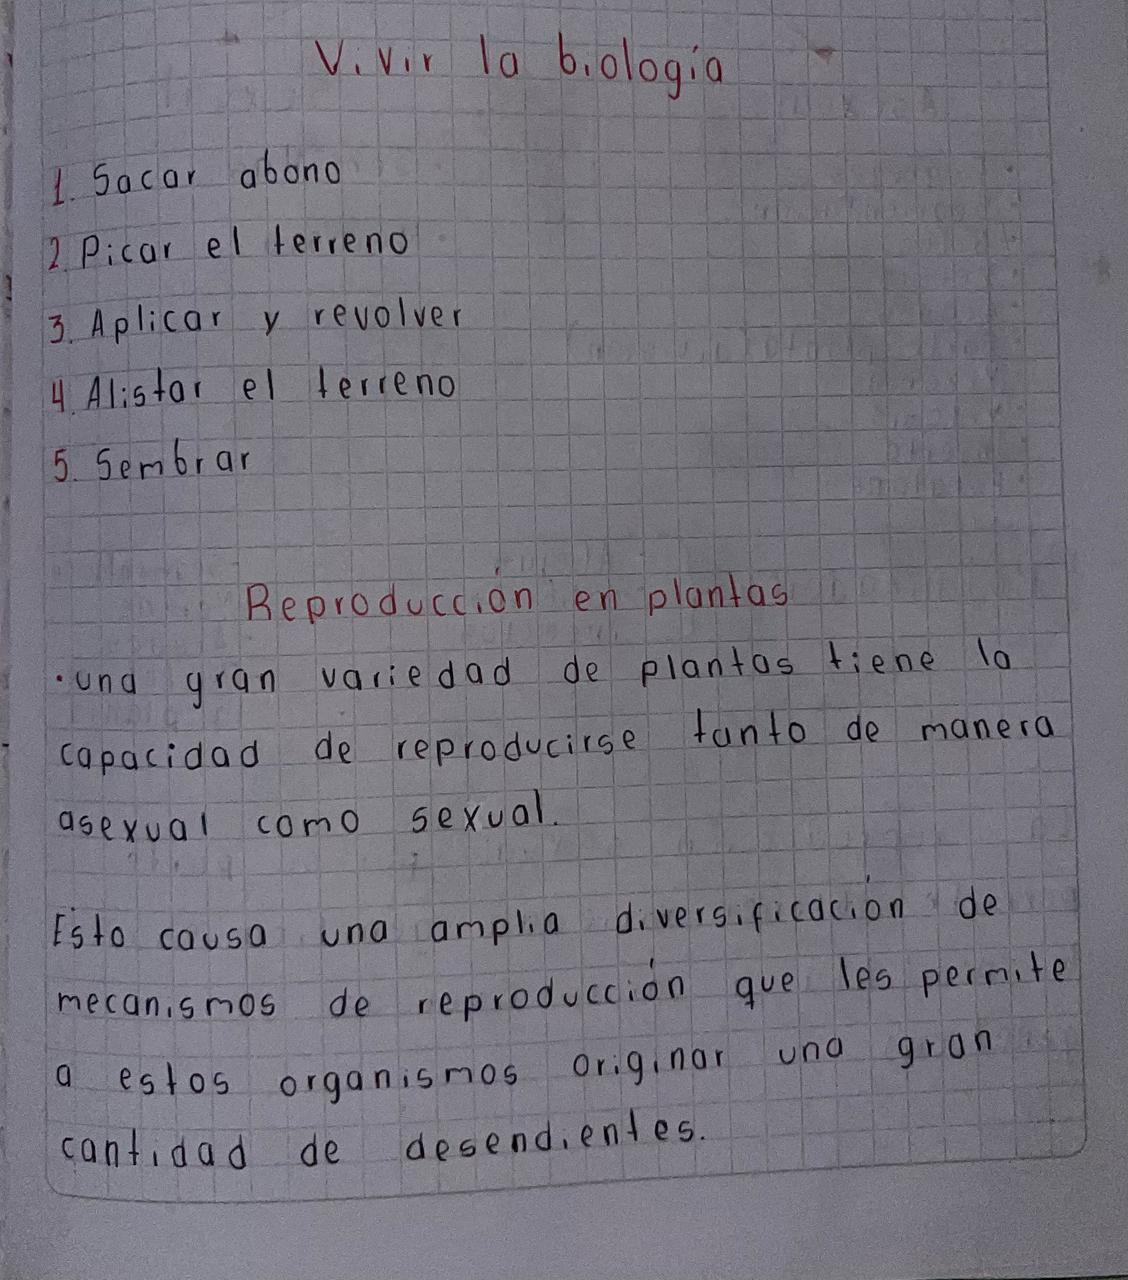 Vivir la biología
1. Sacar abono
2. Picar el terreno
3. Aplicar y revolver
4. Alistar el terreno
5. Sembrar
Reproducción en plantas
• una gran variedad de plantas tiene la
capacidad de reproducirse tanto de manera
asexual como sexual.
Esto causa una amplia diversificación de
mecanismos de reproducción que les permite
a estos organismos originar una gran
cantidad de desendientes.